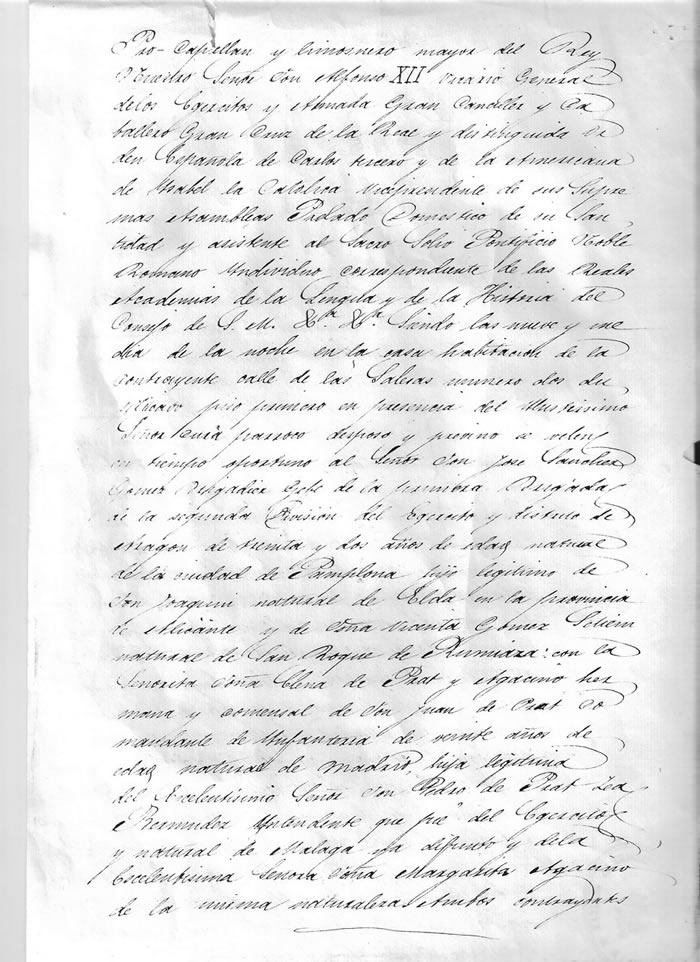 Pro-Capellan y limosnero mayor del Rey
Nuestro Señor Don Alfonso XII Vicario General
de los Egercitos y Armada Gran Canciller y Ca
ballero Gran Cruz de la Real y distinguida Or
den Española de Carlos tercero y de la Americana
de Ysabel la Catolica Vicepresidente de sus Supre
mas Asambleas Prelado Domestico de su San
tidad y asistente al Sacro Solio Pontificio Noble
Romano Yndividuo correspondiente de las Reales
Academias de la Lengua y de la Historia del
Consejo de S. M. &ª &ª. Siendo las nueve y me
dia de la noche en la casa habitacion de la
contrayente calle de las Salesas numero dos du
plicado piso primero en presencia del Ilustrisimo
Señor Cura parroco desposo y previno se velen
en tiempo oportuno al Señor Don Jose Sanchez
Gomez Brigadier Gefe de la primera Brigada
de la segunda Division del Egercito y distrito de
Aragon de treinta y dos años de edad natural
de la ciudad de Pamplona hijo legitimo de
Don Joaquin natural de Elda en la provincia
de Alicante y de Doña Vicenta Gomez
natural de San Roque de Rumiaza: con la
Señorita Doña Elena de Prat y Agacino her
mana y comensal de Don Juan de Prat Co
mandante de Ynfanteria de veinte años de
edad natural de Madrid, hija legitima
del Excelentisimo Señor Don Pedro de Prat Zea
Bermudez Yntendente que fue del Egercito
y natural de Malaga ya difunto y de la
Excelentisima Señora Doña Margarita Agacino
de la misma naturaleza. Ambos contrayentes